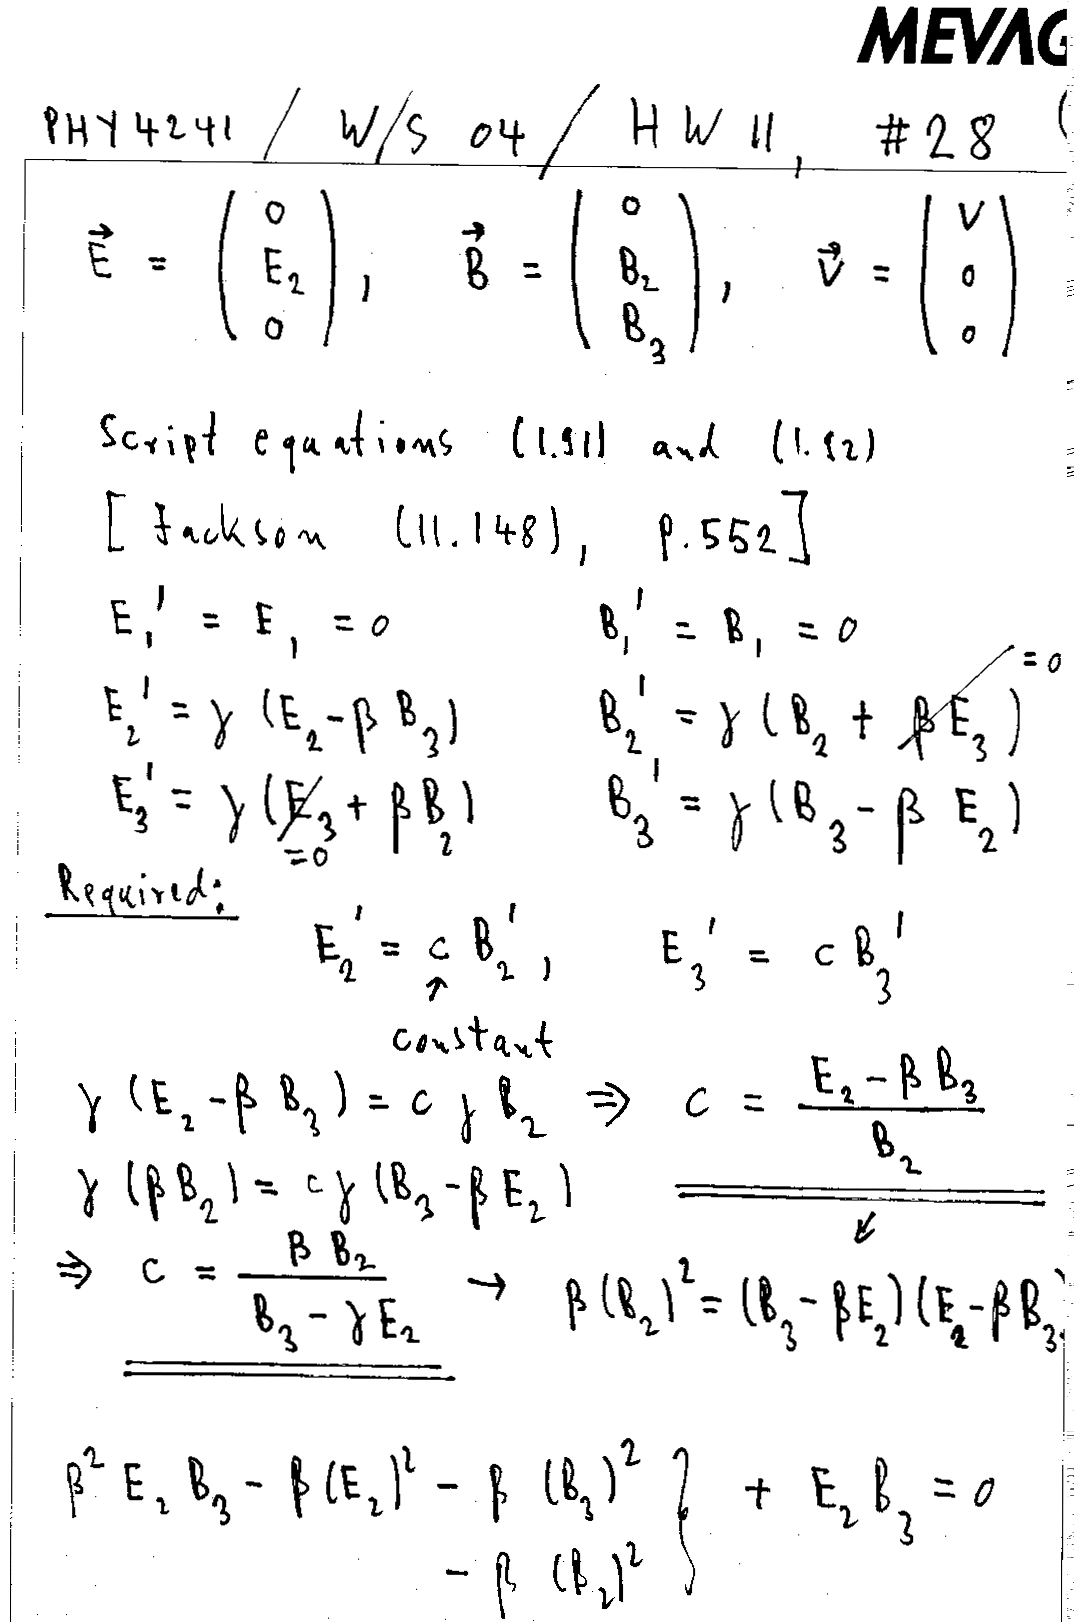 MEVAG
PHY4241 / W/S 04 / HW 11, #28 (
E⃗ = ( 0 E₂ 0 ), B⃗ = ( 0 B₂ B₃ ), v⃗ = ( v 0 0 )
Script equations (1.91) and (1.92)
[ Jackson (11.148), p.552 ]
E₁' = E₁ = 0 B₁' = B₁ = 0
E₂' = γ (E₂ - β B₃) B₂' = γ (B₂ + β E₃) = 0
E₃' = γ (E₃ + β B₂) B₃' = γ (B₃ - β E₂)
= 0
Required:
E₂' = c B₂', E₃' = c B₃'
↑
constant
γ (E₂ - β B₃) = c γ B₂ ⇒ c = (E₂ - β B₃) / B₂
γ (β B₂) = c γ (B₃ - β E₂)
⇒ c = β B₂ / (B₃ - γ E₂) → β (B₂)² = (B₃ - β E₂) (E₂ - β B₃)
β² E₂ B₃ - β (E₂)² - β (B₃)² } + E₂ B₃ = 0
- β (B₂)²